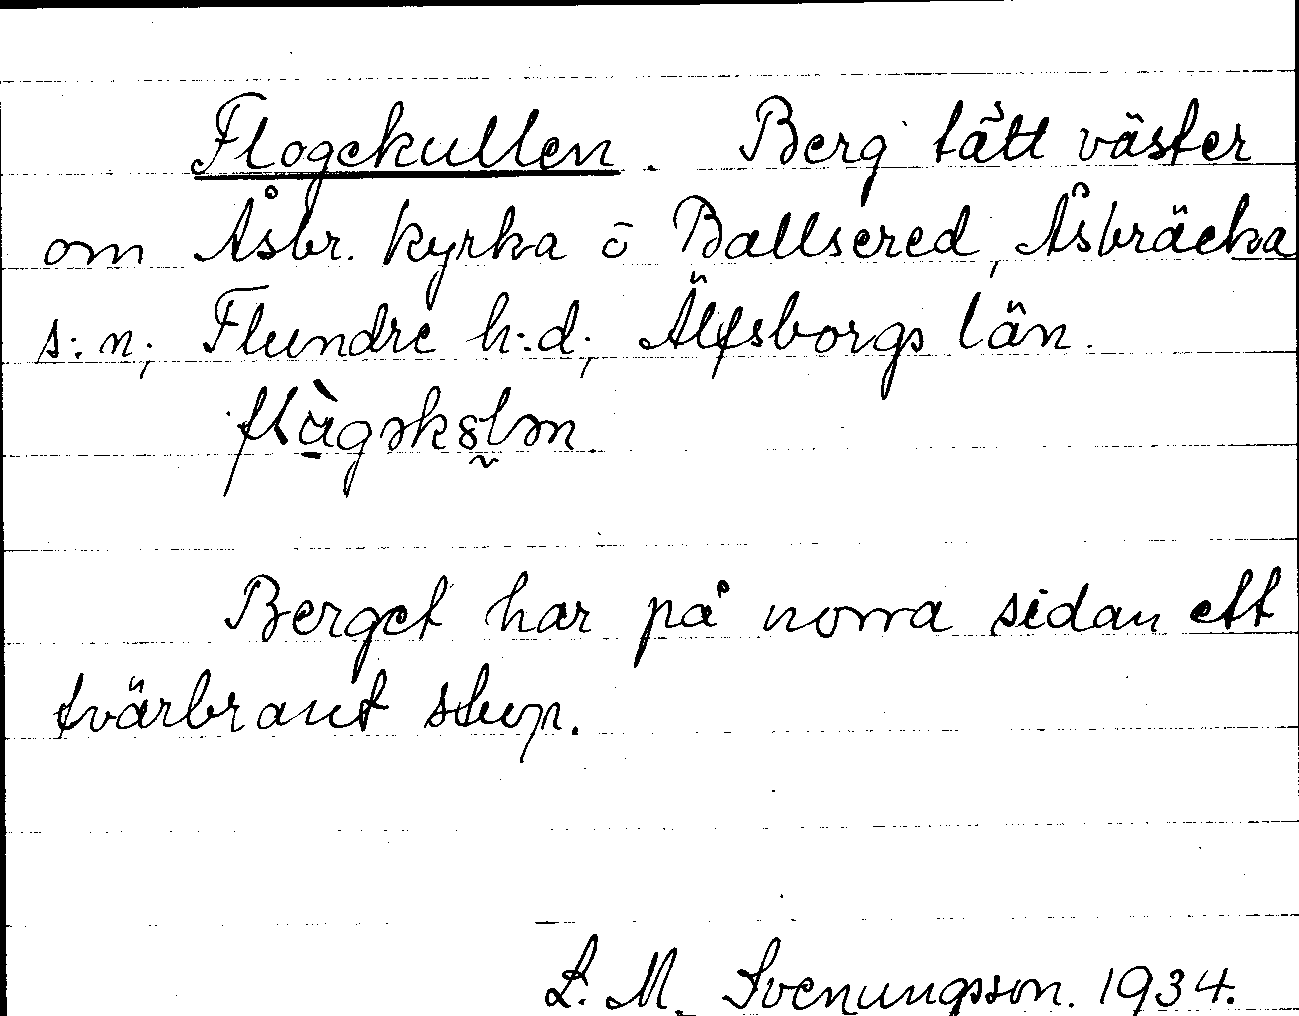 Flogekullen. Berg tätt väster
om Åsbr. kyrka ō Ballsered, Åsbräcka
s:n, Flundre h:d, Älfsborgs län.

Berget har på norra sidan ett
tvärbrant stup.
L. M. Svenungsson. 1934.